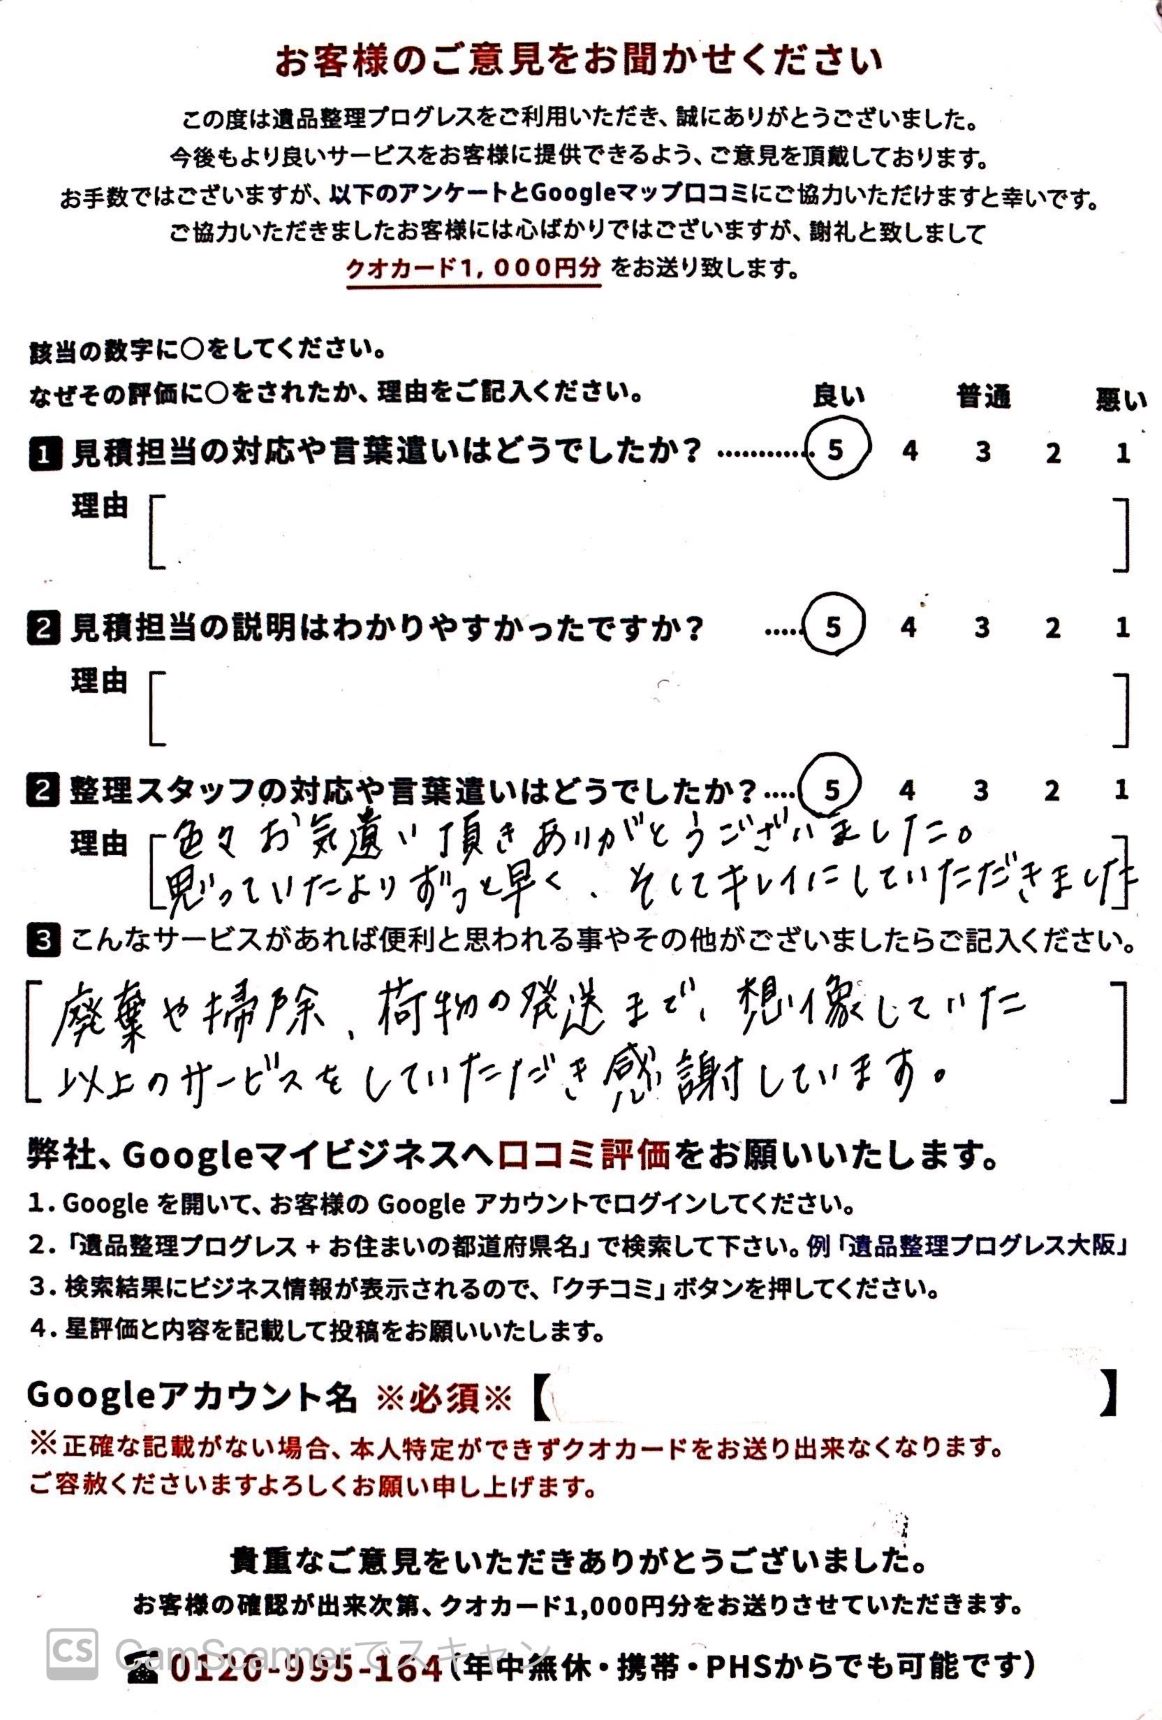 お客様のご意見をお聞かせください
この度は遺品整理プログレスをご利用いただき、誠にありがとうございました。
今後もより良いサービスをお客様に提供できるよう、ご意見を頂戴しております。
お手数ではございますが、以下のアンケートとGoogleマップ口コミにご協力いただけますと幸いです。
ご協力いただきましたお客様には心ばかりではございますが、謝礼と致しまして
クオカード1,000円分をお送り致します。
該当の数字に〇をしてください。
なぜその評価に〇をされたか、理由をご記入ください。 良い 普通 悪い
1 見積担当の対応や言葉遣いはどうでしたか？ ………… 5 4 3 2 1
理由
2 見積担当の説明はわかりやすかったですか？ ….. 5 4 3 2 1
理由
2 整理スタッフの対応や言葉遣いはどうでしたか？…. 5 4 3 2 1
理由 色々お気遣い頂きありがとうございました。
思っていたよりずっと早く、そしてキレイにしていただきました
3 こんなサービスがあれば便利と思われる事やその他がございましたらご記入ください。
廃棄や掃除、荷物の発送まで、想像していた
以上のサービスをしていただき感謝しています。
弊社、Googleマイビジネスへ口コミ評価をお願いいたします。
1. Google を開いて、お客様の Google アカウントでログインしてください。
2. 「遺品整理プログレス + お住まいの都道府県名」で検索して下さい。例「遺品整理プログレス大阪」
3. 検索結果にビジネス情報が表示されるので、「クチコミ」ボタンを押してください。
4. 星評価と内容を記載して投稿をお願いいたします。
Googleアカウント名 ※必須※【 】
※正確な記載がない場合、本人特定ができずクオカードをお送り出来なくなります。
ご容赦くださいますよろしくお願い申し上げます。
貴重なご意見をいただきありがとうございました。
お客様の確認が出来次第、クオカード1,000円分をお送りさせていただきます。
CS CamScannerでスキャン
☎0120-995-164（年中無休・携帯・PHSからでも可能です）